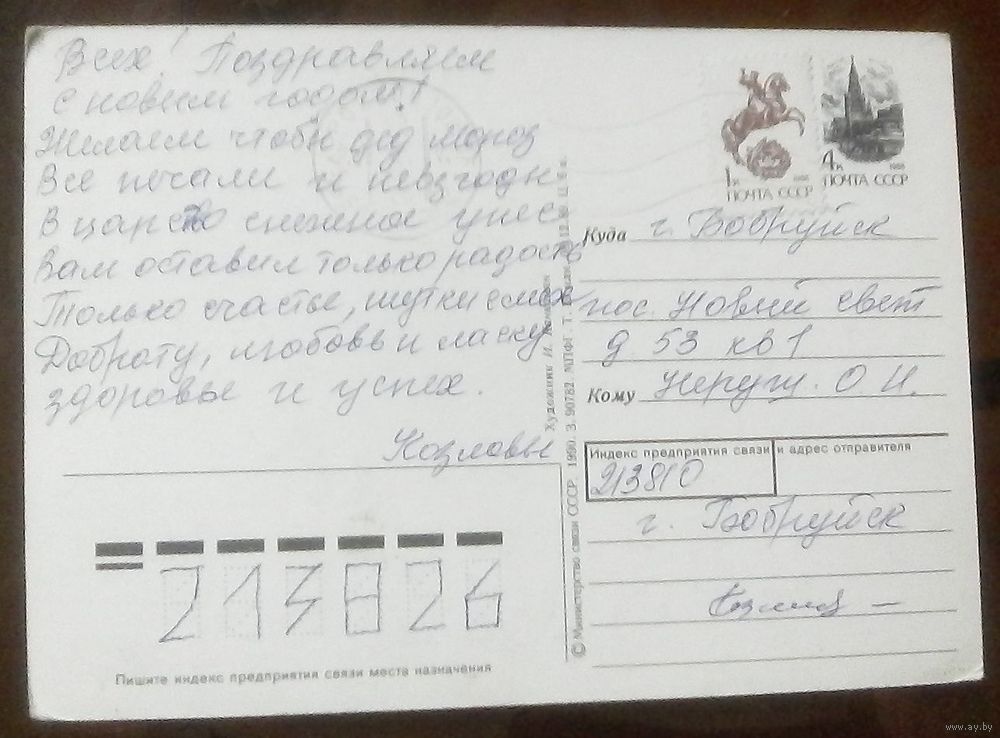 Всех! Поздравляем
с новым годом!
Желаем чтобы дед мороз
Все печали и невзгоды
В царство снежное унес
Вам оставил только радость
Только счастье, шутки смех
Доброту, любовь и ласку
здоровье и успех.
Козловы
1к 1988
ПОЧТА СССР
4к 1988
ПОЧТА СССР
Куда г. Бобруйск
пос. Новый свет
д 53 кв 1
Кому О. И.
Индекс предприятия связи и адрес отправителя
213810
г. Бобруйск
213826
Пишите индекс предприятия связи места назначения
Художник И.
© Министерство связи СССР. 1990. З. 90782. МПФГ.
www.ay.by